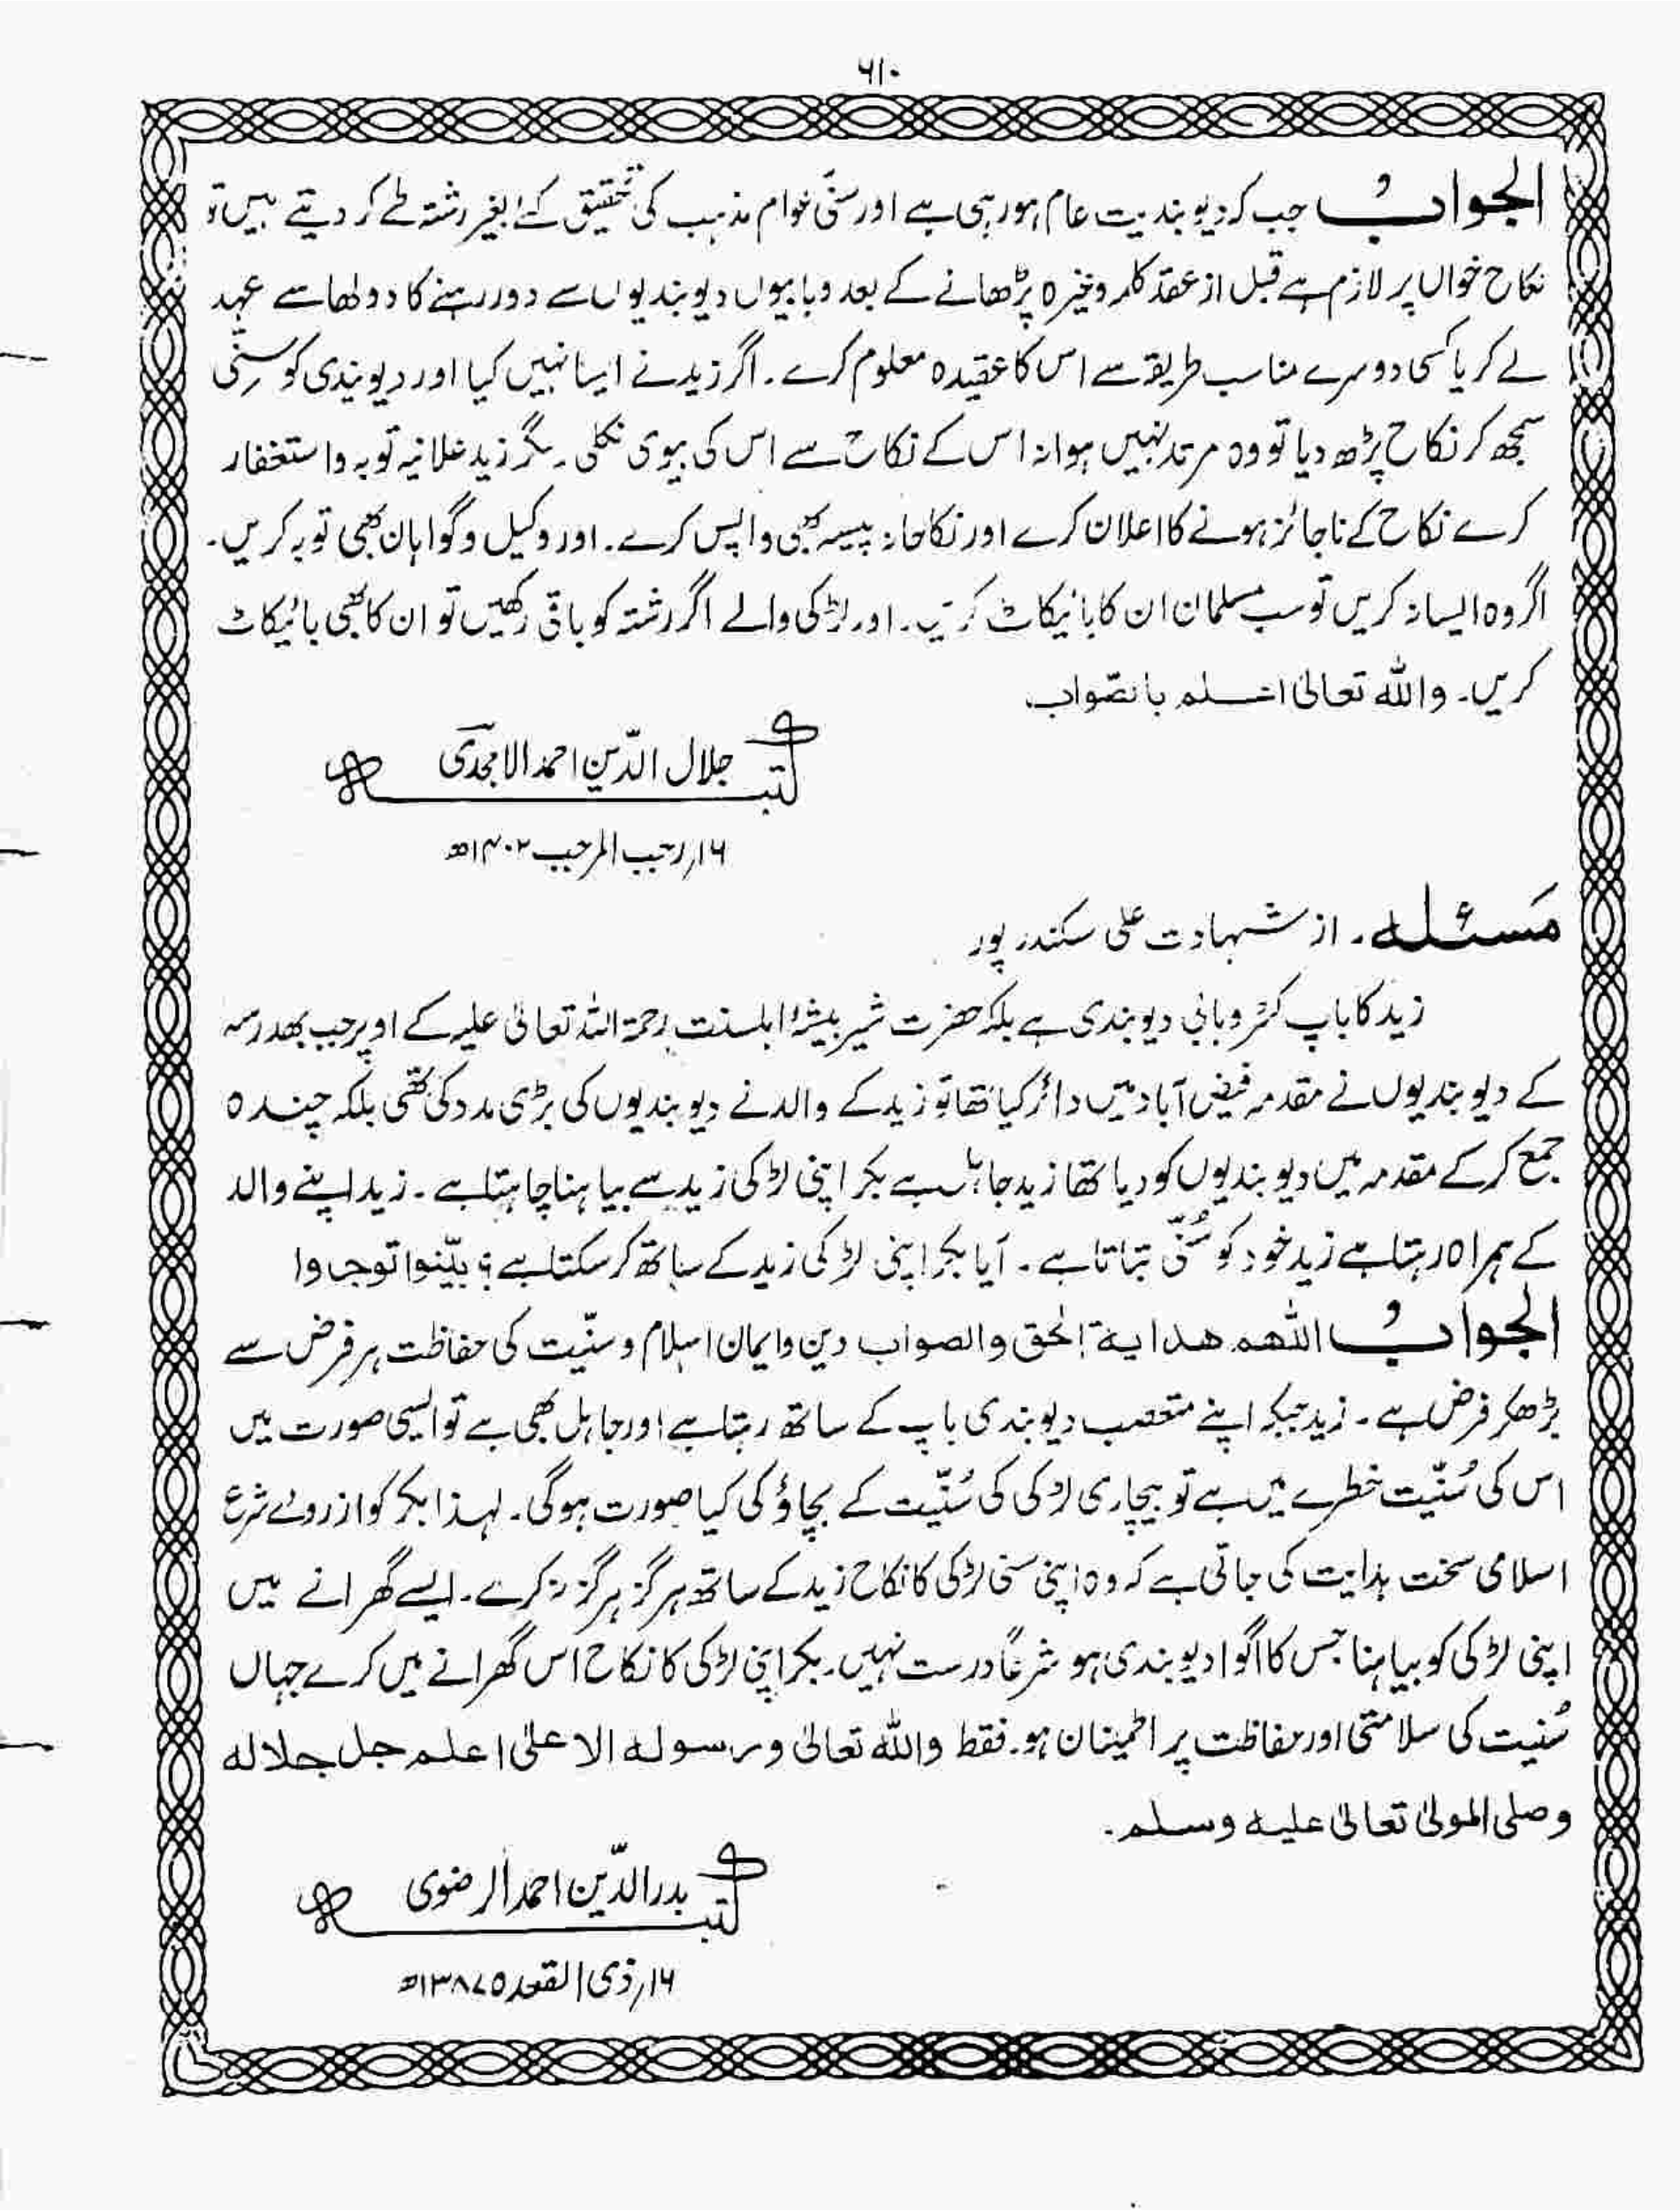 ۶۱۰
الجوابُ جب کہ دیوبندیت عام ہورہی ہے اور سنّی عوام مذہب کی تحقیق کے بغیر رشتہ طے کر دیتے ہیں تو
نکاح خواں پر لازم ہے قبل از عقد کلمہ وغیرہ پڑھانے کے بعد وہابیوں دیوبندیوں سے دور رہنے کا دولھا سے عہد
لے کر یا کسی دوسرے مناسب طریقے سے اس کا عقیدہ معلوم کرے۔ اگر زید نے ایسا نہیں کیا اور دیوبندی کو سنّی
سمجھ کر نکاح پڑھ دیا تو وہ مرتد نہیں ہوا نہ اس کے نکاح سے اس کی بیوی نکلی۔ مگر زید علانیہ توبہ و استغفار
کرے نکاح کے ناجائز ہونے کا اعلان کرے اور نکاحانہ پیسہ بھی واپس کرے۔ اور وکیل و گواہان بھی توبہ کریں۔
اگر وہ ایسا نہ کریں تو سب مسلمان ان کا بائیکاٹ کریں۔ اور لڑکی والے اگر رشتہ کو باقی رکھیں تو ان کا بھی بائیکاٹ
کریں۔ واللہ تعالیٰ اعلم بالصّواب
کتبہ جلال الدّین احمد الامجدی
۱۶؍رجب المرجب ۱۴۰۲ھ
مَسئلہ۔ از شہادت علی سکندر پور
زید کا باپ کٹر وہابی دیوبندی ہے بلکہ حضرت شیر بیشۂ اہلسنت رحمۃ اللہ تعالیٰ علیہ کے اوپر جب بھدرسہ
کے دیوبندیوں نے مقدمہ فیض آباد میں دائر کیا تھا تو زید کے والد نے دیوبندیوں کی بڑی مدد کی تھی بلکہ چندہ
جمع کر کے مقدمہ میں دیوبندیوں کو دیا تھا زید جاہل ہے بکر اپنی لڑکی زید سے بیاہنا چاہتا ہے۔ زید اپنے والد
کے ہمراہ رہتا ہے زید خود کو سُنّی بتاتا ہے۔ آیا بکر اپنی لڑکی زید کے ساتھ کر سکتا ہے؟ بیّنوا توجروا
الجوابُ اللھم ھدایۃ الحق والصواب دین و ایمان اسلام و سنّیت کی حفاظت ہر فرض سے
بڑھکر فرض ہے۔ زید جبکہ اپنے متعصب دیوبندی باپ کے ساتھ رہتا ہے اور جاہل بھی ہے تو ایسی صورت میں
اس کی سُنّیت خطرے میں ہے تو بیچاری لڑکی کی سُنّیت کے بچاؤ کی کیا صورت ہوگی۔ لہذا بکر کو از روئے شرع
اسلامی سخت ہدایت کی جاتی ہے کہ وہ اپنی سنی لڑکی کا نکاح زید کے ساتھ ہرگز ہرگز نہ کرے۔ ایسے گھرانے میں
اپنی لڑکی کو بیاہنا جس کا اگوا دیوبندی ہو شرعاً درست نہیں۔ بکر اپنی لڑکی کا نکاح اس گھرانے میں کرے جہاں
سُنیت کی سلامتی اور حفاظت پر اطمینان ہو۔ فقط واللہ تعالیٰ ورسولہ الاعلیٰ اعلم جل جلالہ
وصلی المولیٰ تعالیٰ علیہ وسلم۔
کتبہ بدر الدّین احمد الرضوی
۱۶؍ذی القعدہ ۱۳۸۷ھ